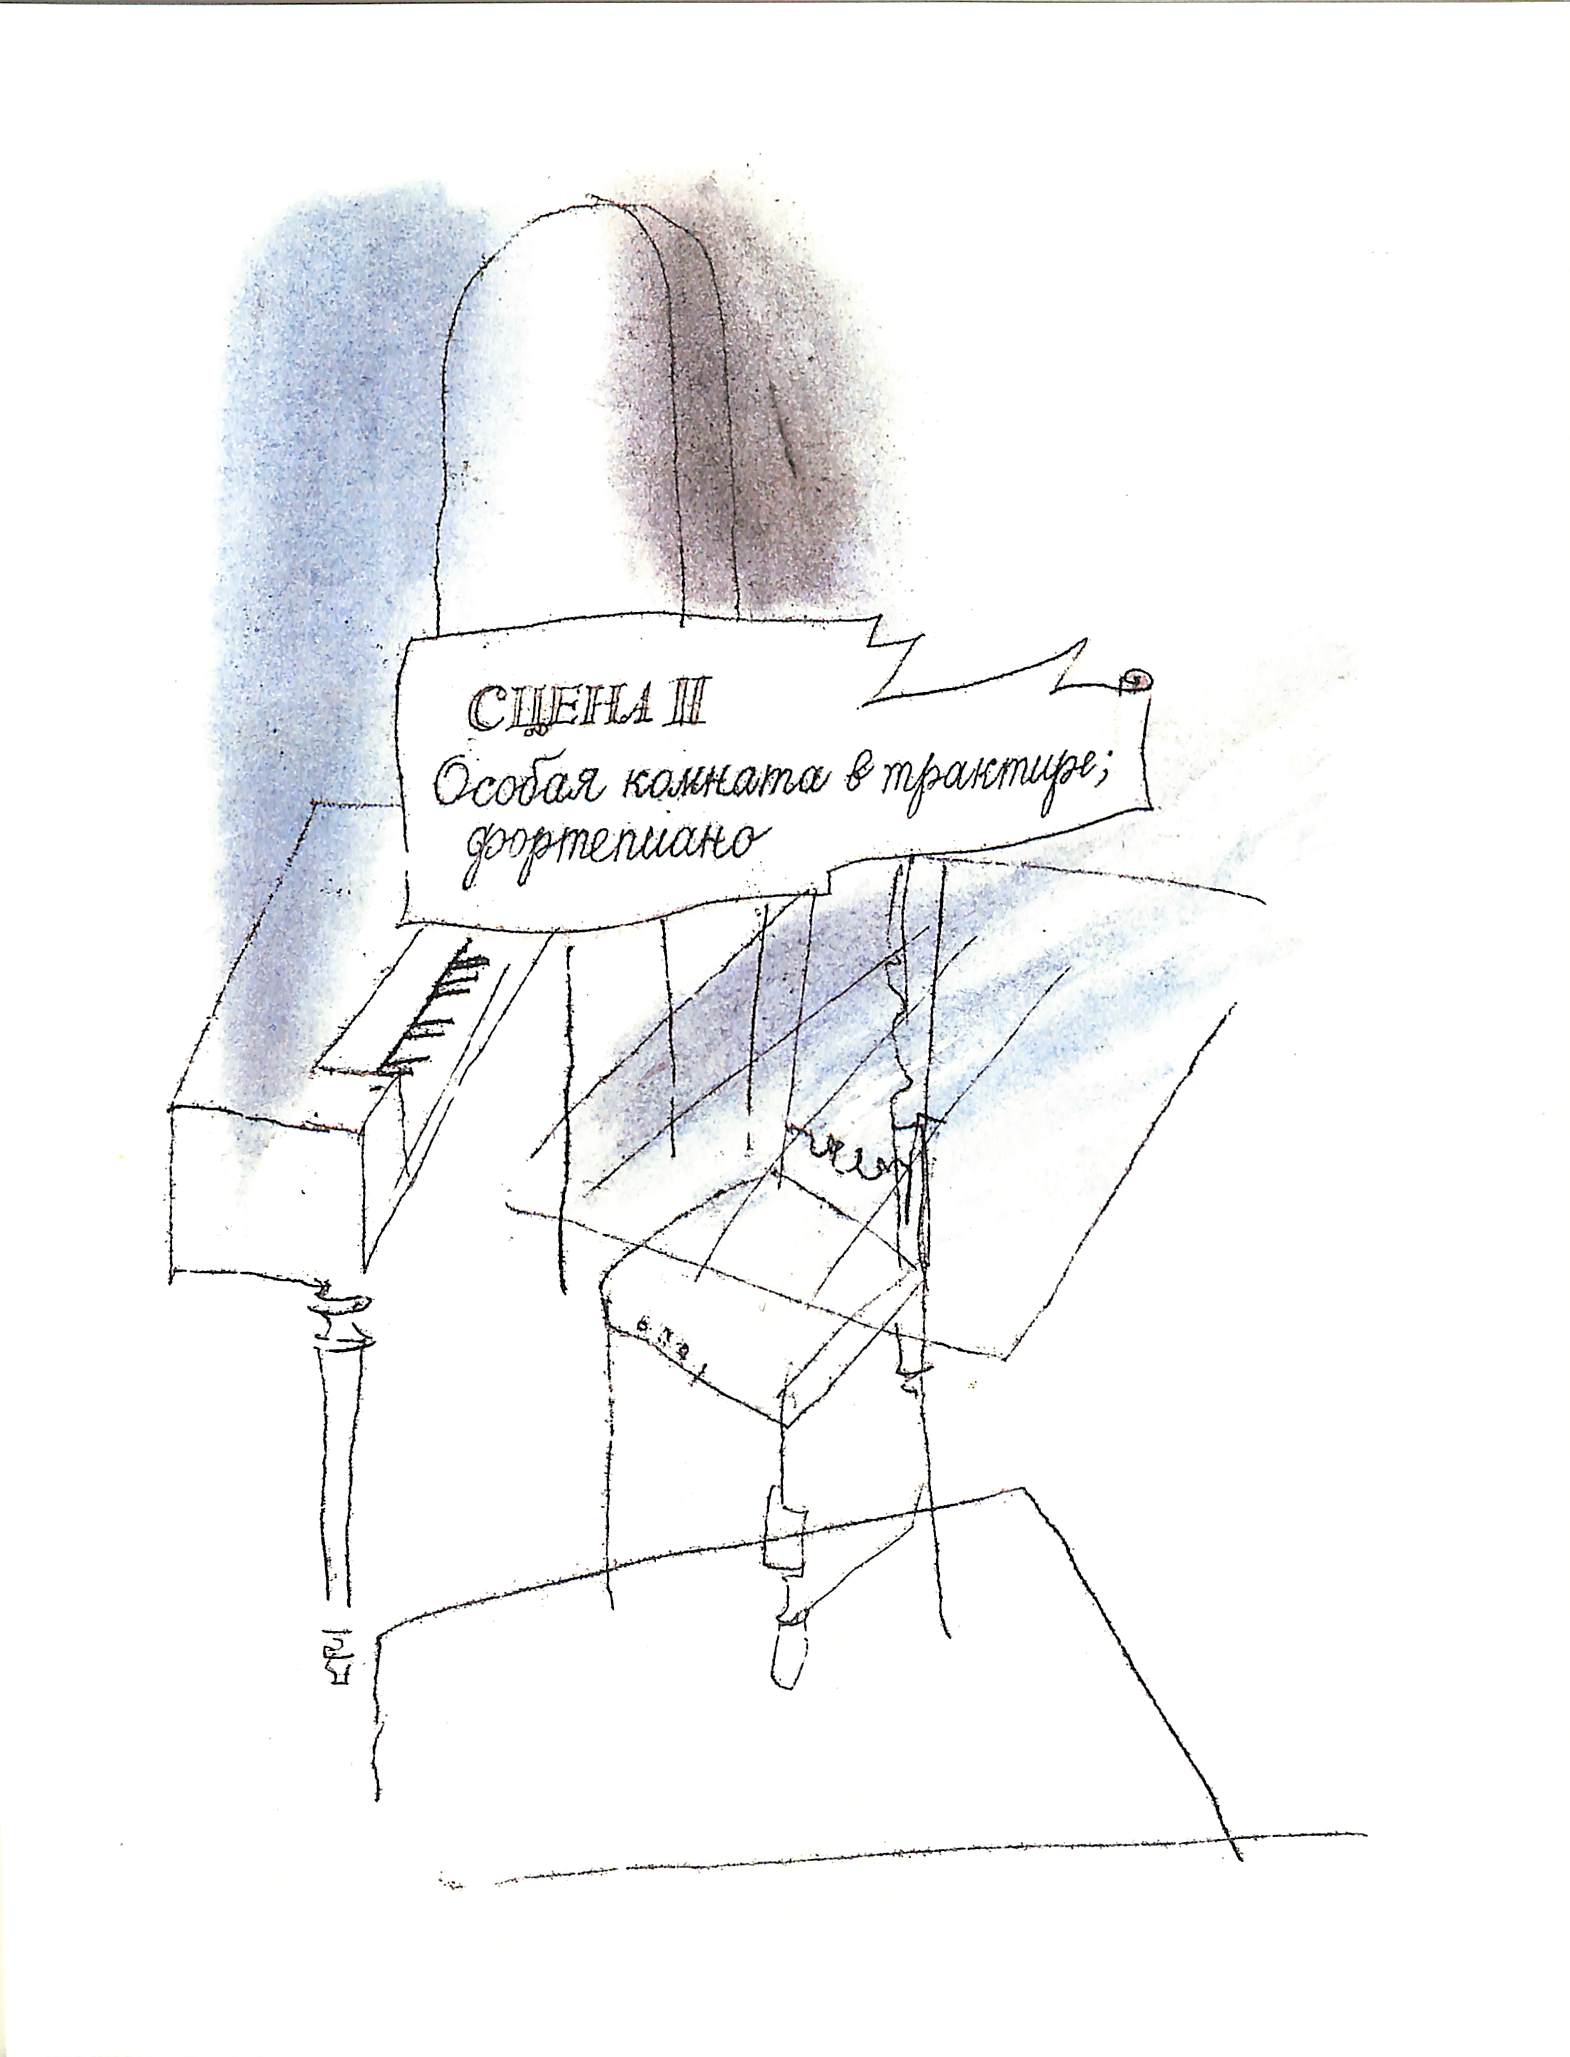 СЦЕНА II
Особая комната в трактире;
фортепиано